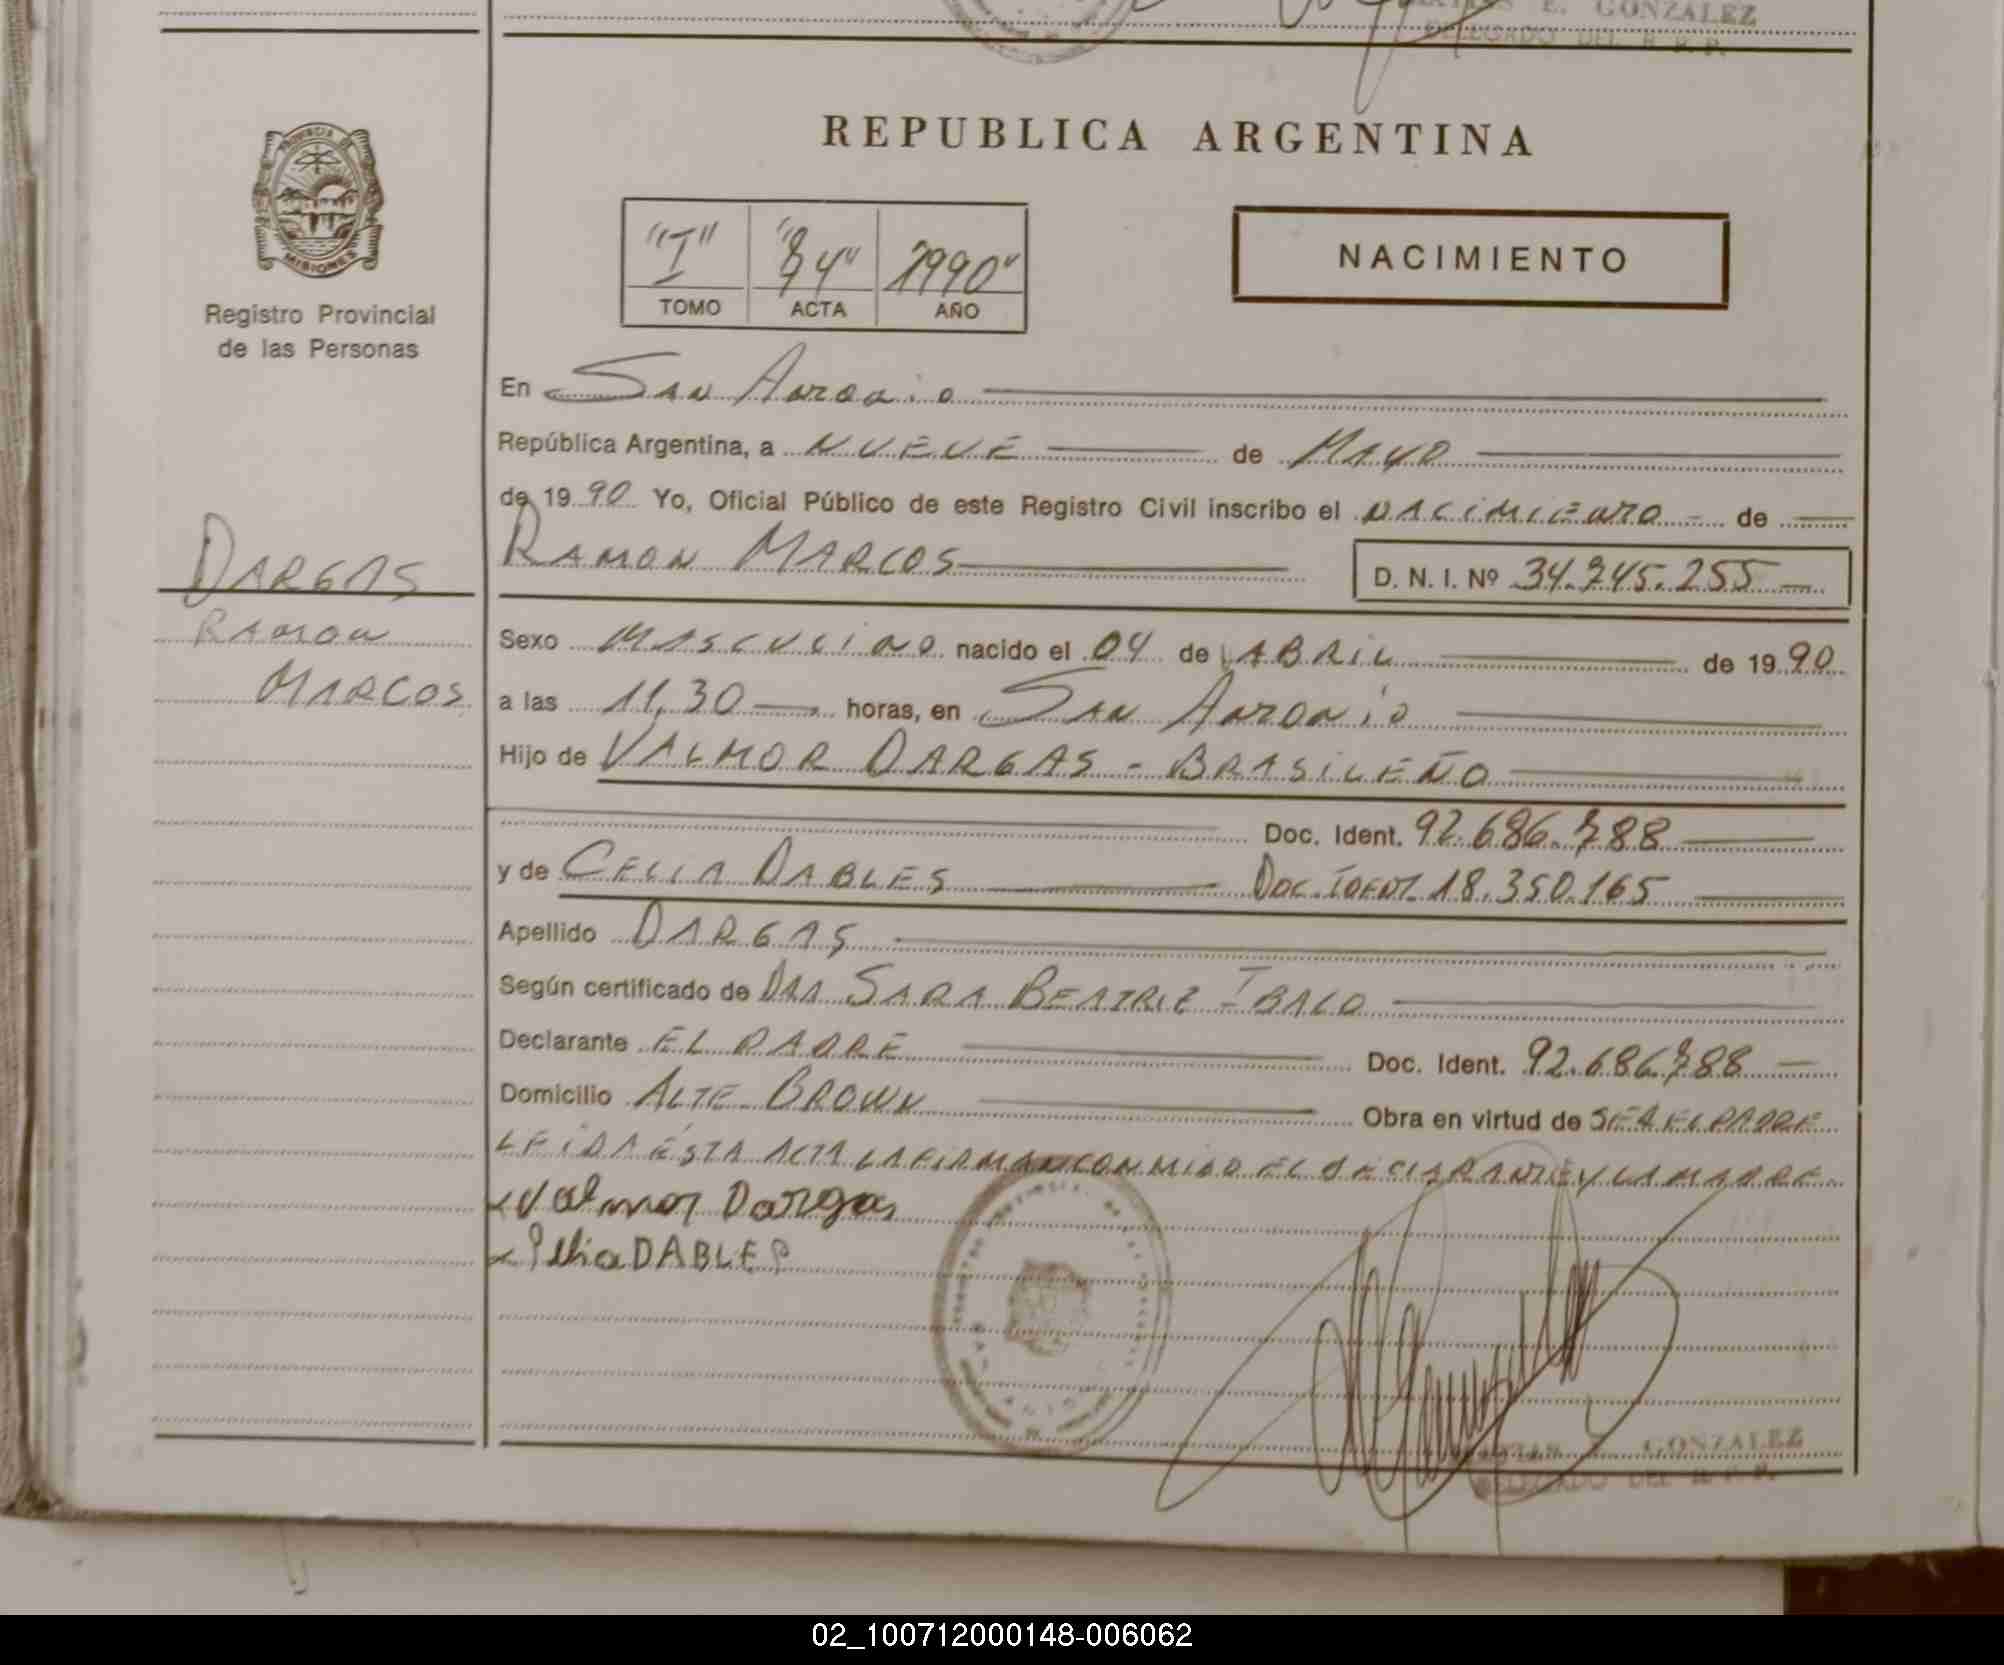 E. GONZALEZ
DELEGADO DEL R. P. P.
REPUBLICA ARGENTINA
PROVINCIA DE
MISIONES
Registro Provincial
de las Personas
"I" "74" 1990"
TOMO ACTA AÑO
NACIMIENTO
En San Antonio
República Argentina, a NUEVE de MAYO
de 1990 Yo, Oficial Público de este Registro Civil inscribo el NACIMIENTO - de
RAMON MARCOS D. N. I. Nº 34.745.255
DARGAS
RAMON
MARCOS
Sexo MASCULINO nacido el 04 de ABRIL de 1990
a las 11,30 horas, en SAN ANTONIO
Hijo de VALMOR DARGAS - BRASILEÑO
Doc. Ident. 92.686.788
y de CELIA DABLES Doc. IDENT. 18.350.165
Apellido DARGAS
Según certificado de DRA SARA BEATRIZ TBALO
Declarante EL PADRE Doc. Ident. 92.686.788
Domicilio ALTE BROWN Obra en virtud de SER EL PADRE
LEIDA ÉSTA ACTA LA FIRMAN CONMIGO EL DECLARANTE Y LA MADRE
x Valmor Dargas
x Selia DABLES
GONZALEZ
DELEGADO DEL R. P. P.
02_100712000148-006062